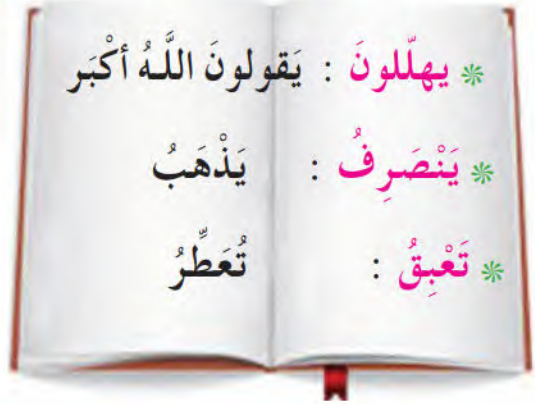 * يهلّلونَ : يَقولونَ اللَّهُ أكْبَر
* يَنْصَرِفُ : يَذْهَبُ
* تَعْبِقُ : تُعَطِّرُ